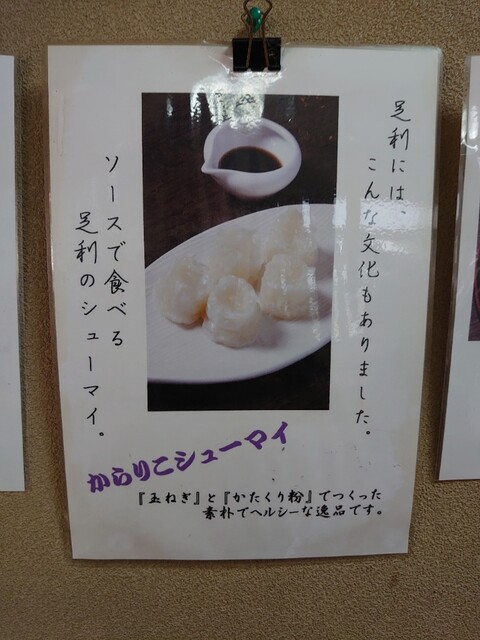 足利には、
こんな文化もありました。
ソースで食べる
足利のシューマイ。
からりこシューマイ
『玉ねぎ』と『かたくり粉』でつくった
素朴でヘルシーな逸品です。